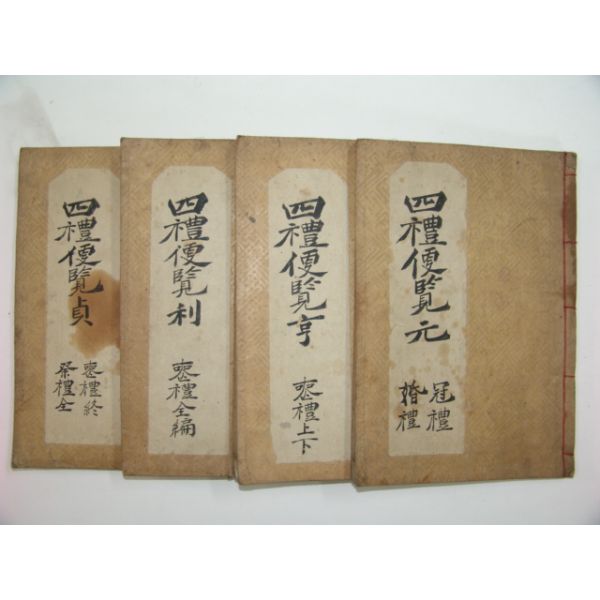 四禮便覽元
冠禮
婚禮
四禮便覽亨
喪禮上下
四禮便覽利
喪禮全編
四禮便覽貞
喪禮終
祭禮全